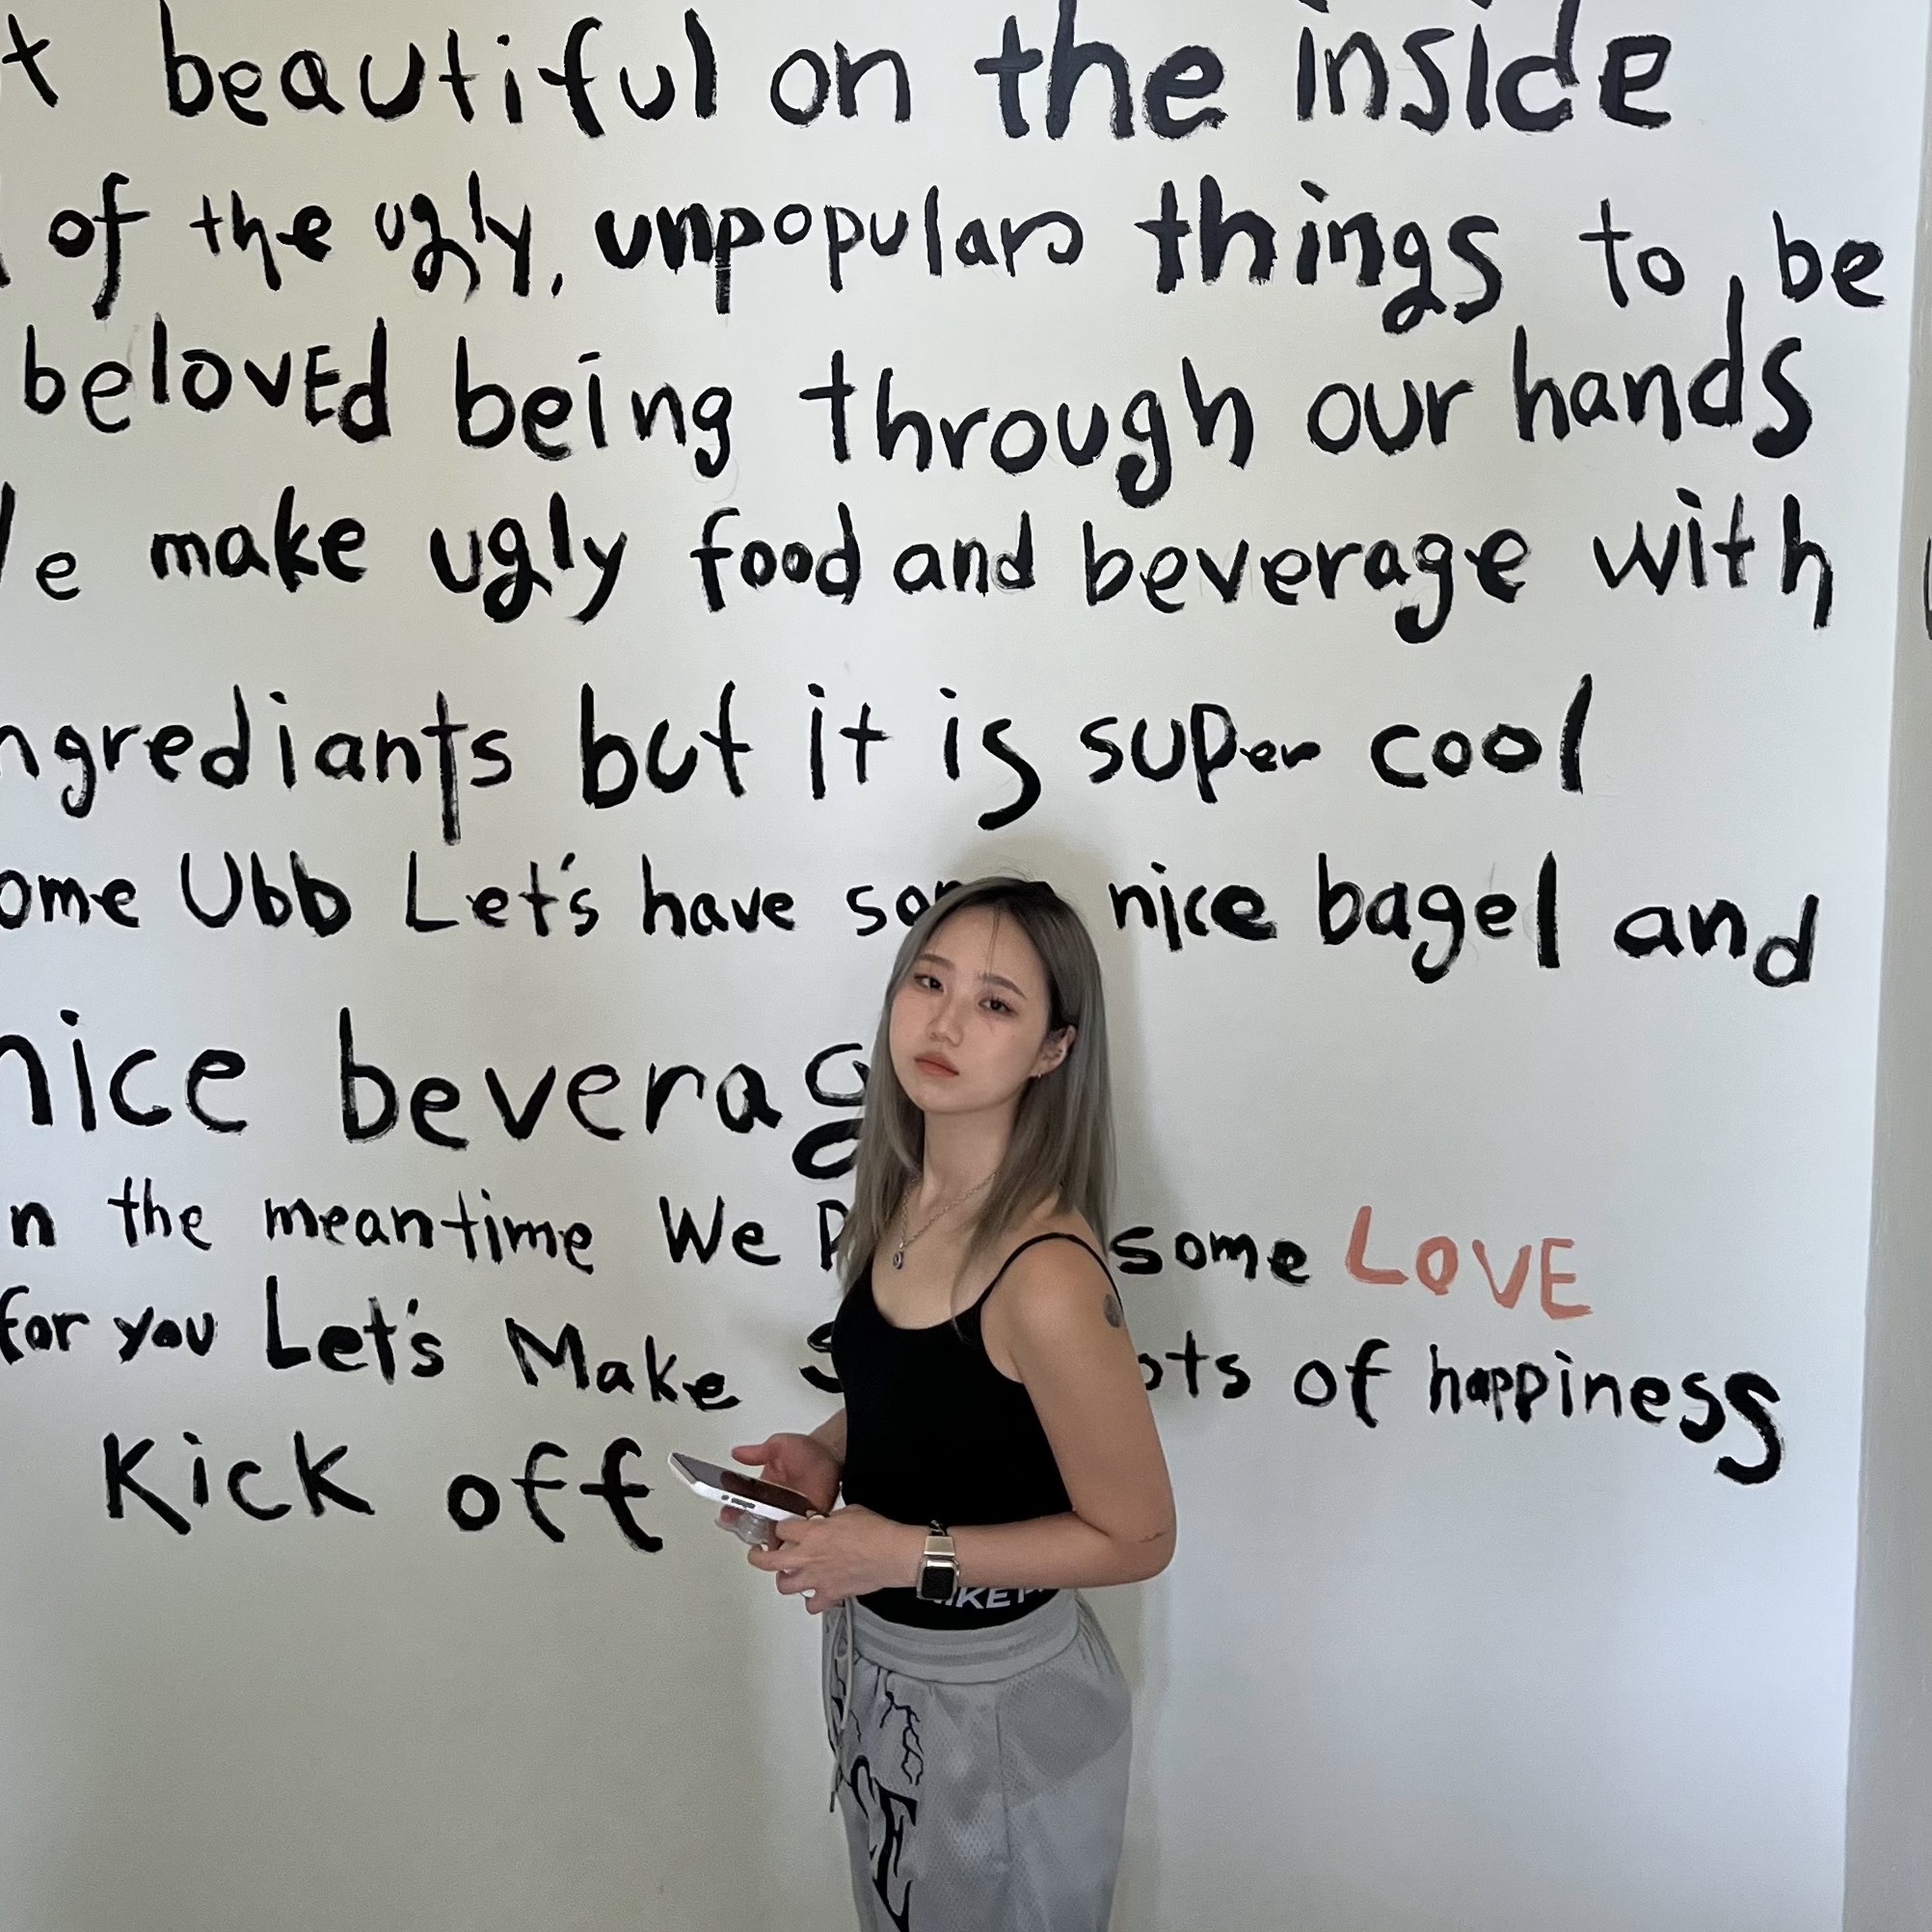 beautiful on the inside
of the ugly, unpopular things to be
beloved being through our hands
make ugly food and beverage with
ngrediants but it is super cool
ome Ubb Let's have nice bagel and
nice
n the meantime We some LOVE
for you Let's Make of happiness
Kick off